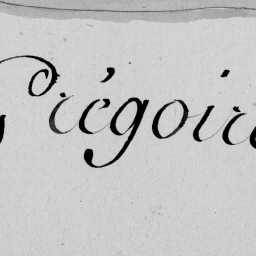 Grégoire